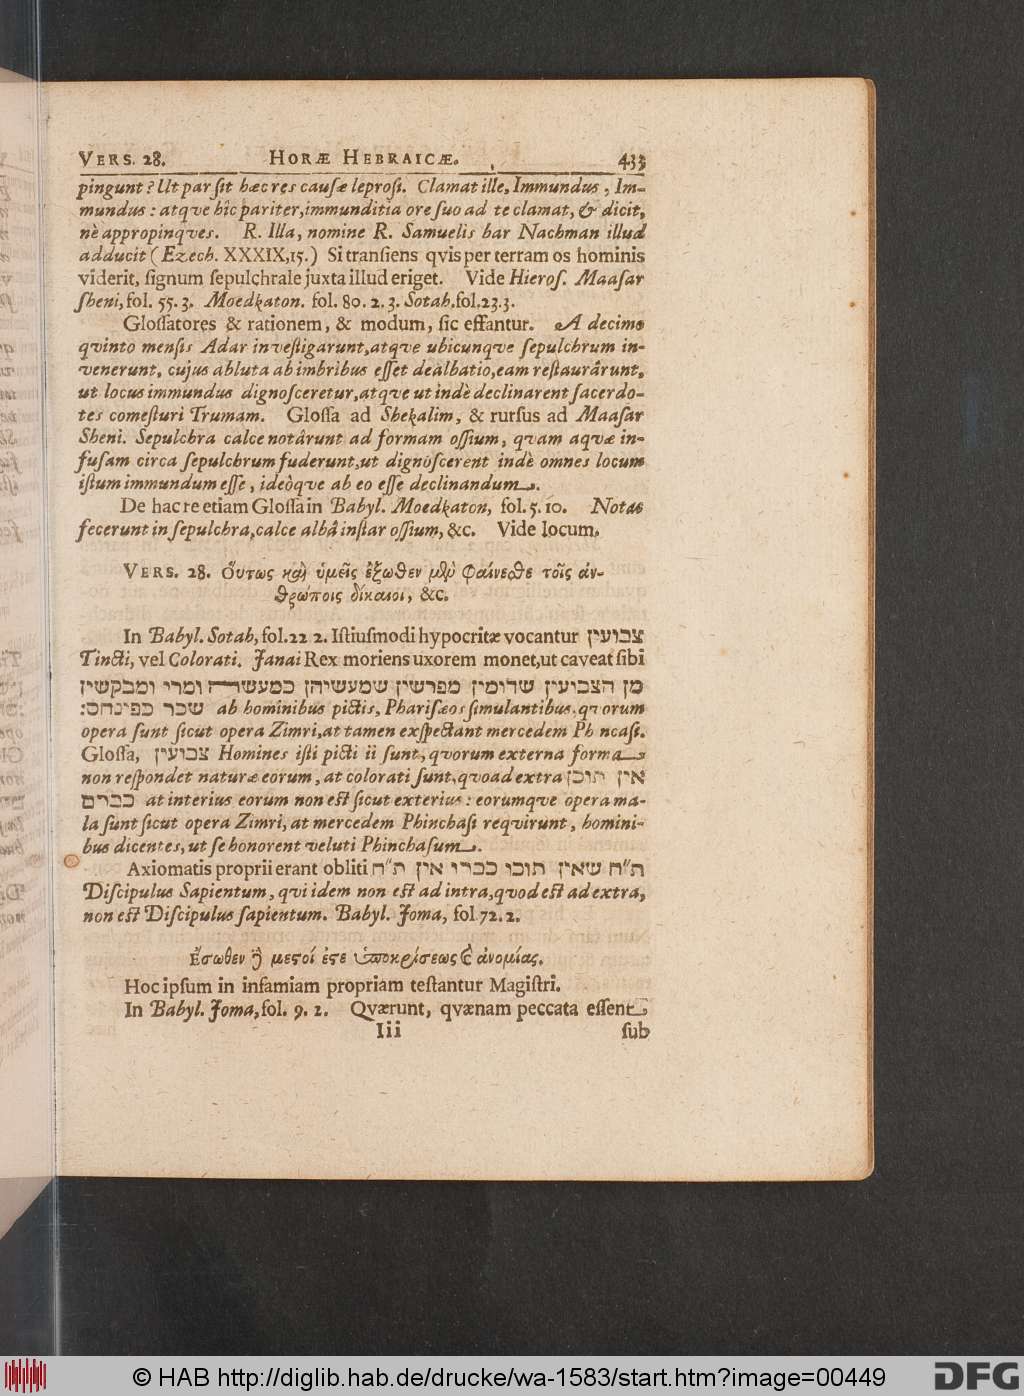 VERS. 28. HORÆ HEBRAICÆ. 433
pingunt? Ut par sit hæc res causæ leprosi. Clamat ille, Immundus, Im-
mundus: atqve hîc pariter, immunditia ore suo ad te clamat, & dicit,
nè appropinqves. R. Illa, nomine R. Samuelis bar Nachman illud
adducit (Ezech. XXXIX,15.) Si transiens qvis per terram os hominis
viderit, signum sepulchrale juxta illud eriget. Vide Hieros. Maasar
sheni, fol. 55. 3. Moedkaton. fol. 80. 2. 3. Sotah. fol. 23. 3.
Glossatores & rationem, & modum, sic effantur. A decimo
qvinto mensis Adar investigarunt, atqve ubicunqve sepulchrum in-
venerunt, cujus abluta ab imbribus esset dealbatio, eam restaurârunt,
ut locus immundus dignosceretur, atqve ut indè declinarent sacerdo-
tes comesturi Trumam. Glossa ad Shekalim, & rursus ad Maasar
Sheni. Sepulchra calce notârunt ad formam ossium, quam aquæ in-
fusam circa sepulchrum fuderunt, ut dignoscerent indè omnes locum
istum immundum esse, ideòqve ab eo esse declinandum.
De hac re etiam Glossa in Babyl. Moedkaton, fol. 5. 10. Notas
fecerunt in sepulchra, calce albâ instar ossium, &c. Vide locum.
VERS. 28. Οὕτως καὶ ὑμεῖς ἔξωθεν μὲν φαίνεσθε τοῖς ἀν-
θρώποις δίκαιοι, &c.
In Babyl. Sotah, fol. 22 2. Istiusmodi hypocritæ vocantur צבועין
Tincti, vel Colorati. Janai Rex moriens uxorem monet, ut caveat sibi
מן הצבועין שדומין מפרשין שמעשיהן כמעשה זמרי ומבקשין
שכר כפינחס: ab hominibus pictis, Pharisæos simulantibus, qvorum
opera sunt sicut opera Zimri, at tamen exspectant mercedem Ph ncasi.
Glossa, צבועין Homines isti picti ii sunt, qvorum externa forma
non respondet naturæ eorum, at colorati sunt, qvoad extra אין תוכן
כברם at interius eorum non est sicut exterius: eorumqve opera ma-
la sunt sicut opera Zimri, at mercedem Phinchasi reqvirunt, homini-
bus dicentes, ut se honorent veluti Phinchasum.
Axiomatis proprii erant obliti ת״ח שאין תוכו כברו אין ת״ח
Discipulus Sapientum, qvi idem non est ad intra, qvod est ad extra,
non est Discipulus sapientum. Babyl. Joma, fol 72. 2.
Ἔσωθεν δὲ μεστοί ἐστε ὑποκρίσεως καὶ ἀνομίας.
Hoc ipsum in infamiam propriam testantur Magistri.
In Babyl. Joma, fol. 9. 2. Qværunt, qvænam peccata essent
Iii sub
© HAB http://diglib.hab.de/drucke/wa-1583/start.htm?image=00449
DFG